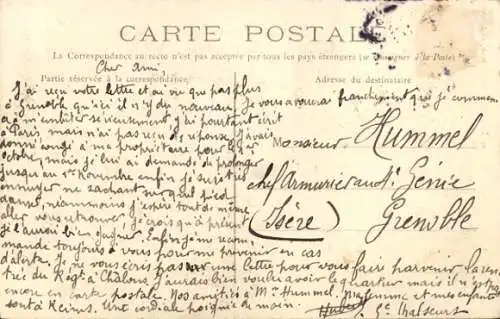 CARTE POSTALE
La Correspondance au recto n'est pas acceptée par tous les pays étrangers (se renseigner à la Poste)
Partie réservée à la correspondance
Adresse du destinataire
Cher Ami,
J'ai reçu votre lettre et ai vu que pas plus
à Grenoble qu'ici il n'y du nouveau. Je vous avouerai franchement que je commence
à m'embêter sérieusement j'ai pourtant écrit
à Paris, mais n'ai pas reçu de réponse. J'avais
donné congé à ma propriétaire pour le 1er
octobre, mais je lui ai demandé de prolonger
jusqu'au 1er Novembre enfin je suis très
ennuyer ne sachant sur quel pied
danser, néanmoins j'espère tout de même
aller vous retrouver. Je crois qu'à présent
je l'aurai bien gagner. Enfin je me recom
mande toujours à vous pour me prévenir en cas
d'alerte. Je ne vous écris pas une lettre pour vous faire parvenir la ren
trée du Régt à Châlons, j'aurais bien voulu avoir le quartier mais il n'est
encore en carte postale. Nos amitiés à Mme Hummel. Ma femme et mes enfants
sont à Reims. Une cordiale poignée de main.
Monsieur Hummel
chef Armurier au 4e Génie
(Isère) Grenoble